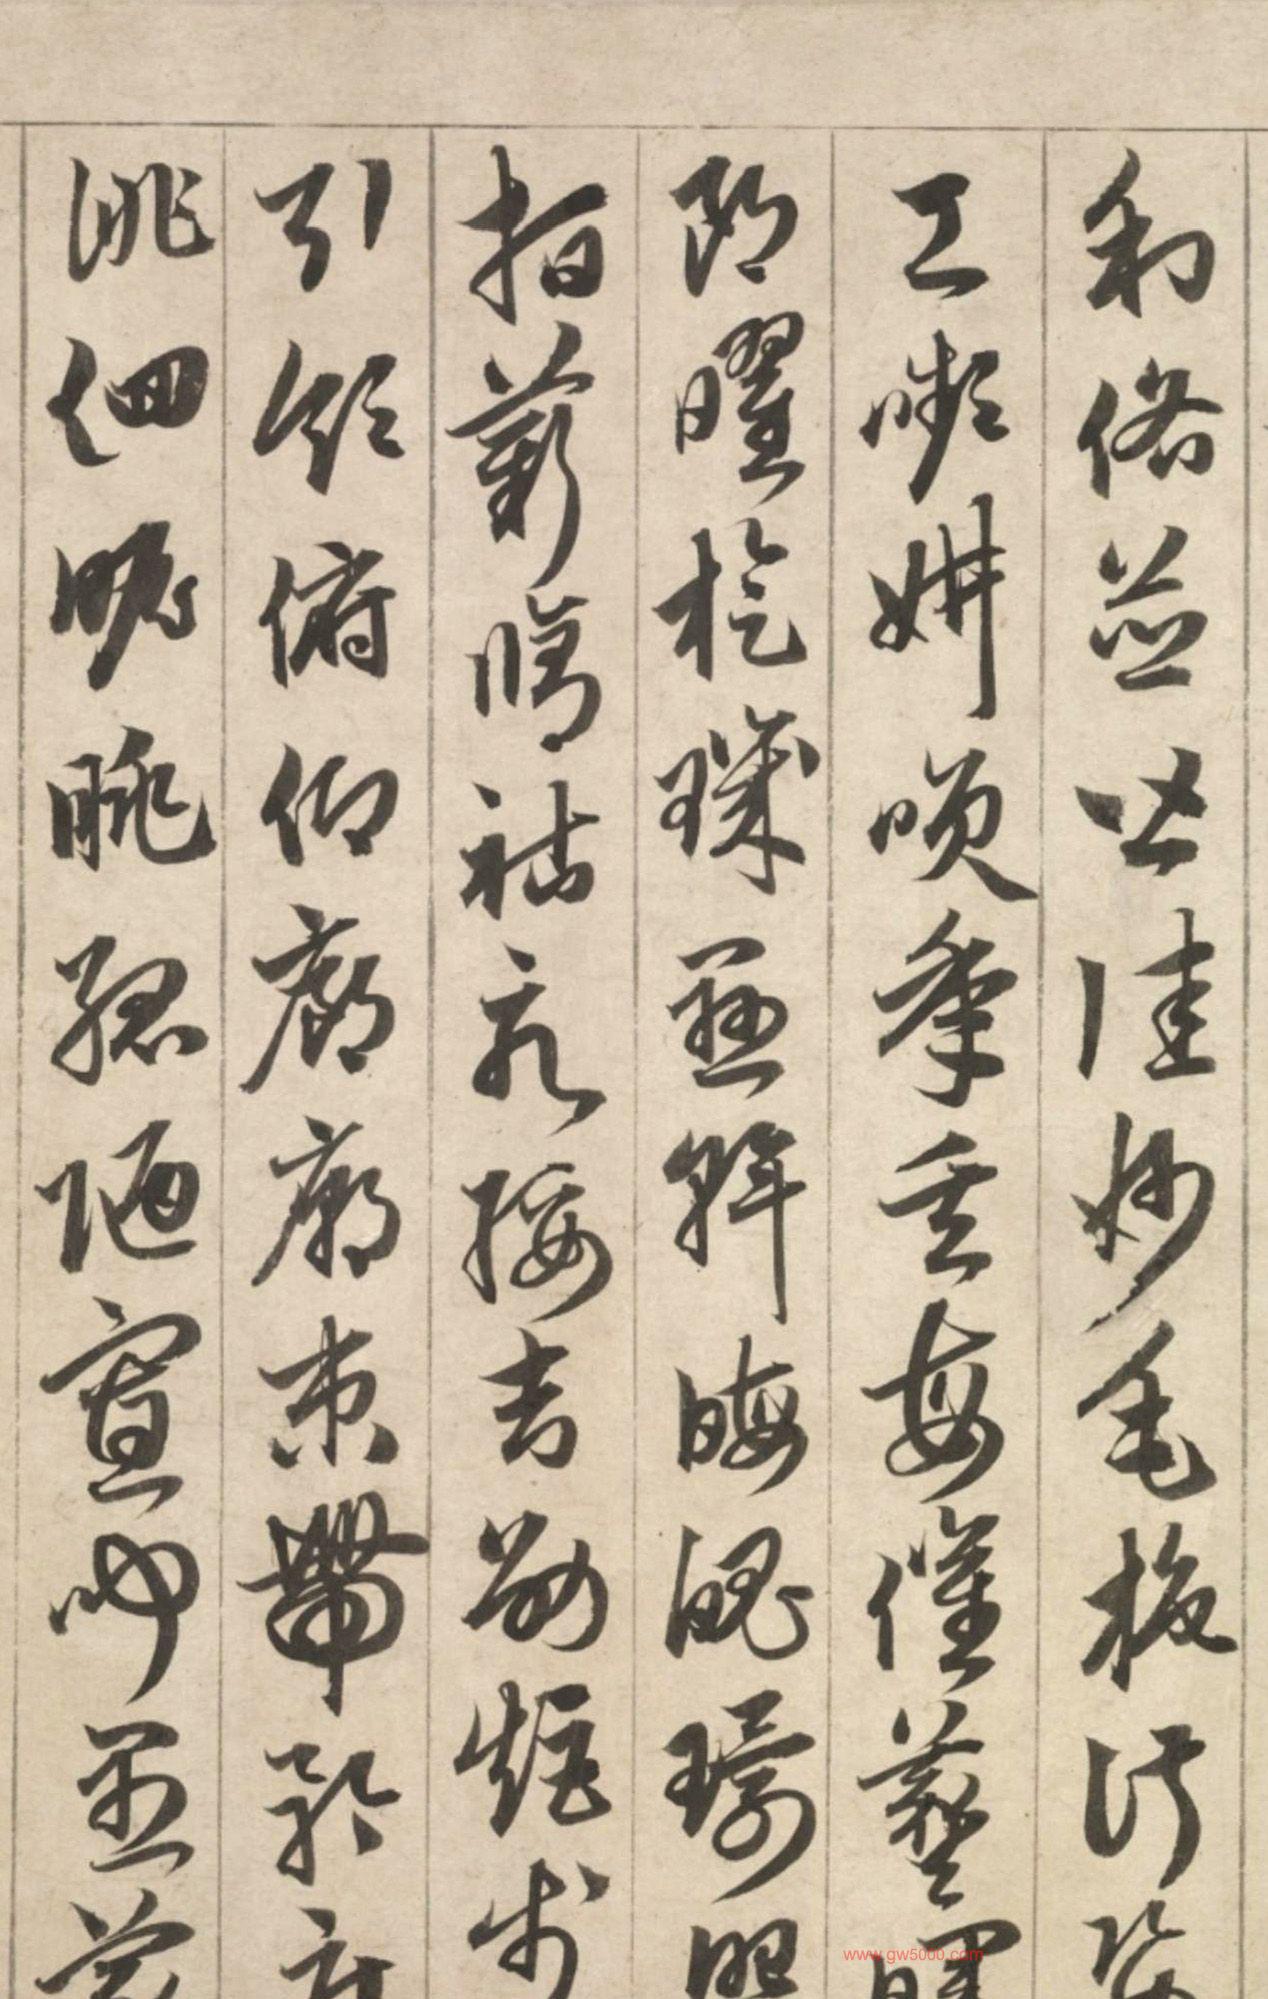 利俗並皆佳妙毛施淑姿
工嚬妍咲年矢每催羲暉
朗曜旋璣懸斡晦魄環照
指薪脩祜永綏吉劭矩步
引領俯仰廊廟束帶矜庄
徘徊瞻眺孤陋寡聞愚蒙
www.gw5000.com